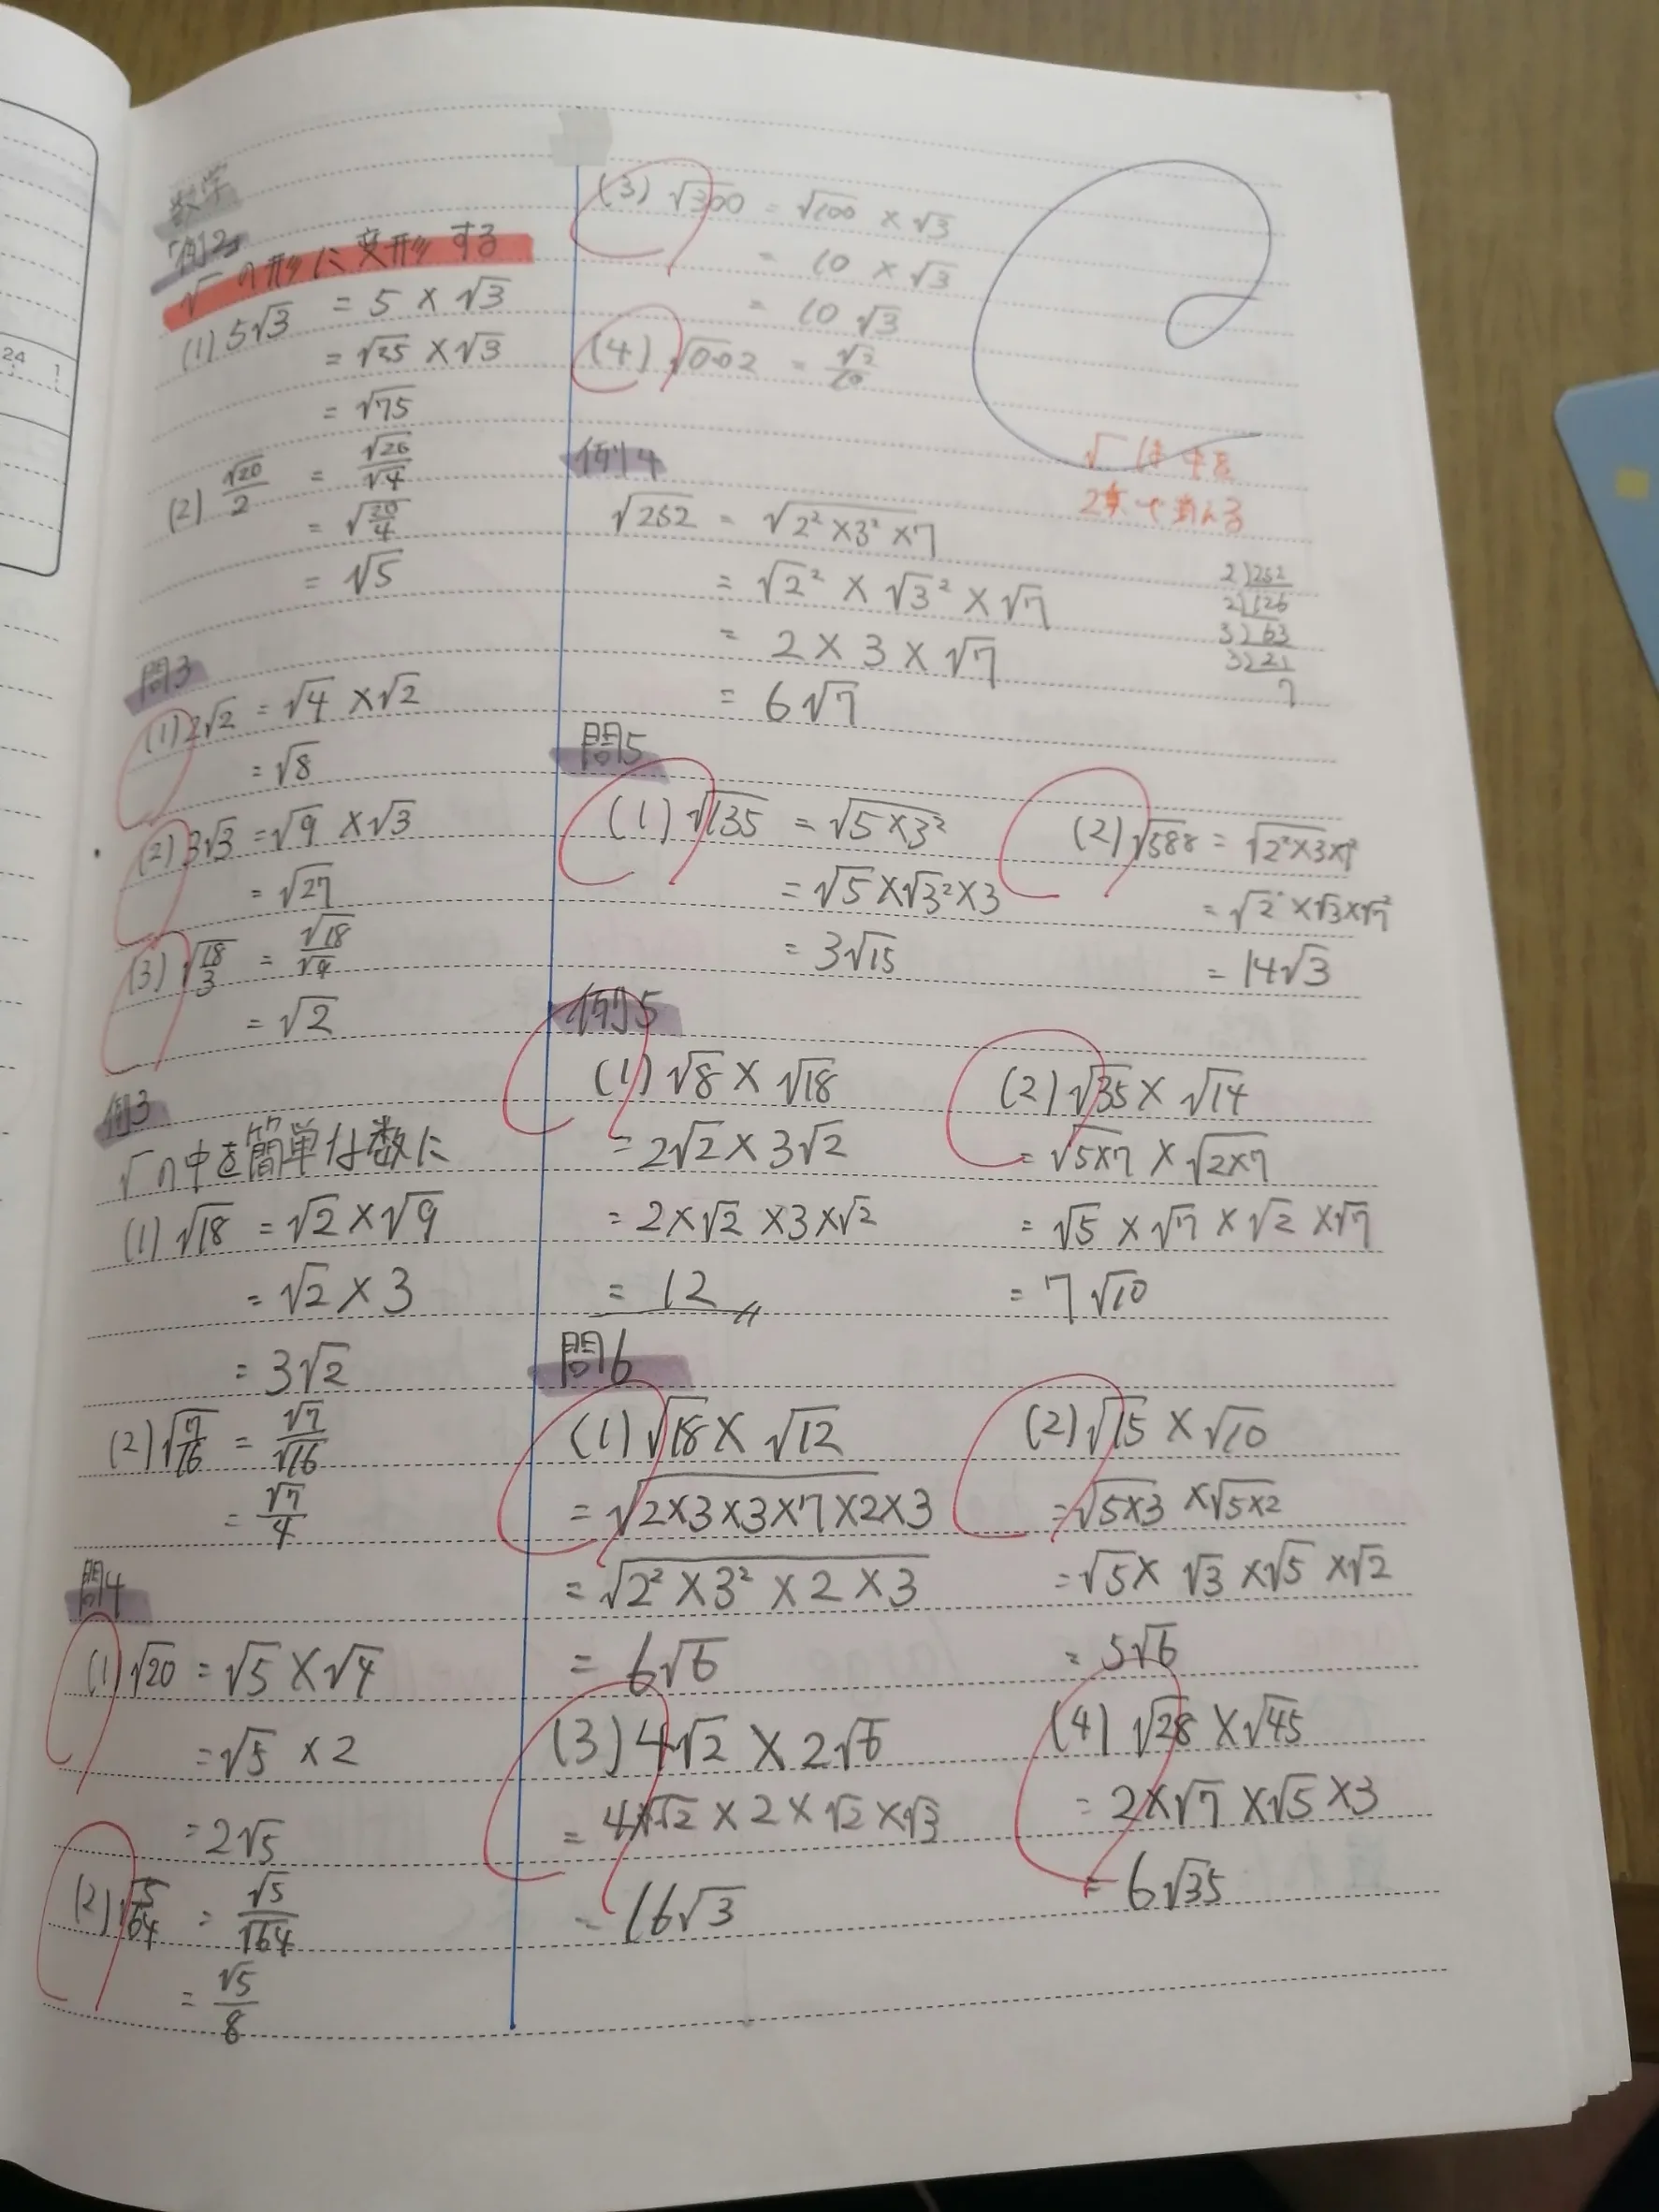 24
数学
例2
√ の形に変形する
(1) 5√3 = 5 × √3
= √25 × √3
= √75
(2) √20/2 = √20/√4
= √(20/4)
= √5
問3
(1) 2√2 = √4 × √2
= √8
(2) 3√3 = √9 × √3
= √27
(3) √18/3 = √18/√9
= √2
例3
√の中を簡単な数に
(1) √18 = √2 × √9
= √2 × 3
= 3√2
(2) √(7/16) = √7/√16
= √7/4
問4
(1) √20 = √5 × √4
= √5 × 2
= 2√5
(2) √(5/64) = √5/√64
= √5/8
(3) √300 = √100 × √3
= 10 × √3
= 10√3
(4) √002 = √2/10
例4
√252 = √(2² × 3² × 7)
= √2² × √3² × √7
= 2 × 3 × √7
= 6√7
√ は
2)252
2)126
3)63
3)21
7
問5
(1) √135 = √(5 × 3²)
= √5 × √3² × 3
= 3√15
(2) √588 = √(2² × 3 × 7²)
= √2² × √3 × √7²
= 14√3
例5
(1) √8 × √18
= 2√2 × 3√2
= 2 × √2 × 3 × √2
= 12
(2) √35 × √14
= √(5×7) × √(2×7)
= √5 × √7 × √2 × √7
= 7√10
問6
(1) √18 × √12
= √(2×3×3×7×2×3)
= √(2² × 3² × 2 × 3)
= 6√6
(2) √15 × √10
= √(5×3) × √(5×2)
= √5 × √3 × √5 × √2
= 5√6
(3) 4√2 × 2√6
= 4×√2 × 2 × √2 × √3
= 16√3
(4) √28 × √45
= 2×√7 × √5 × 3
= 6√35